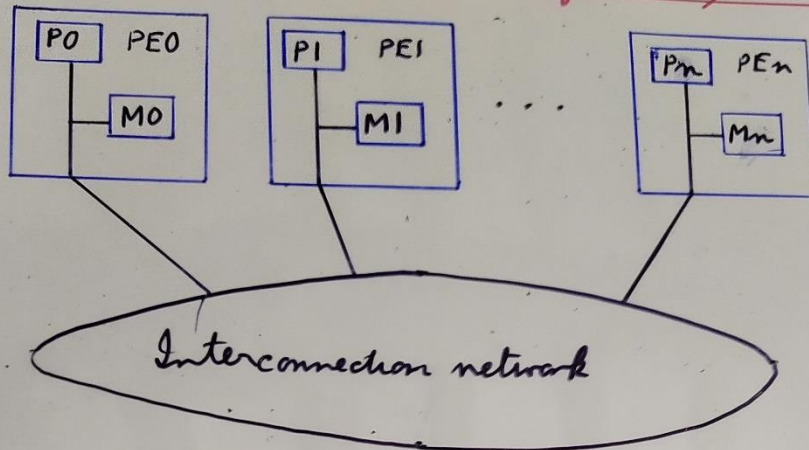 P0 PE0
M0
P1 PE1
M1
. . .
Pn PEn
Mn
Interconnection network